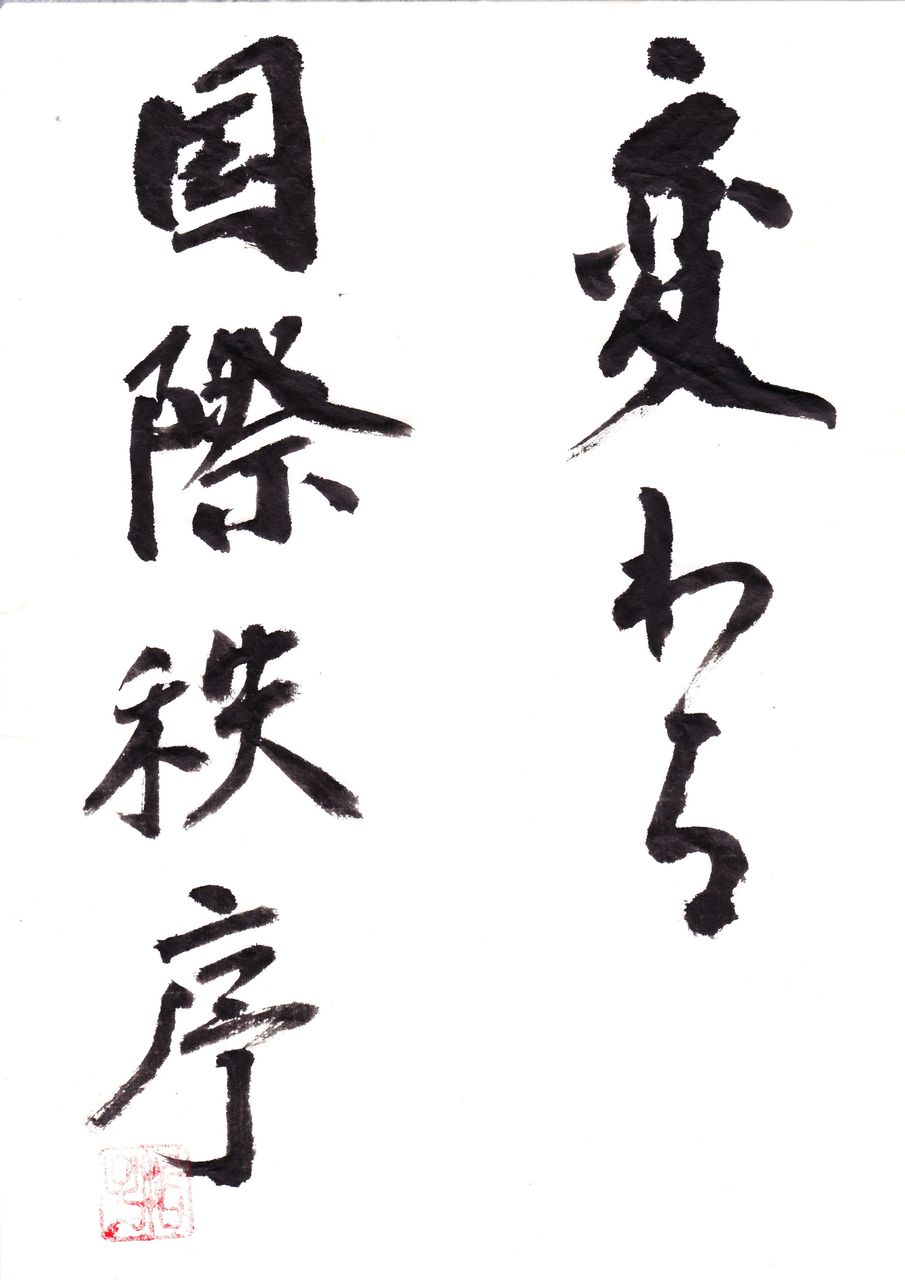 変わる
国際秩序